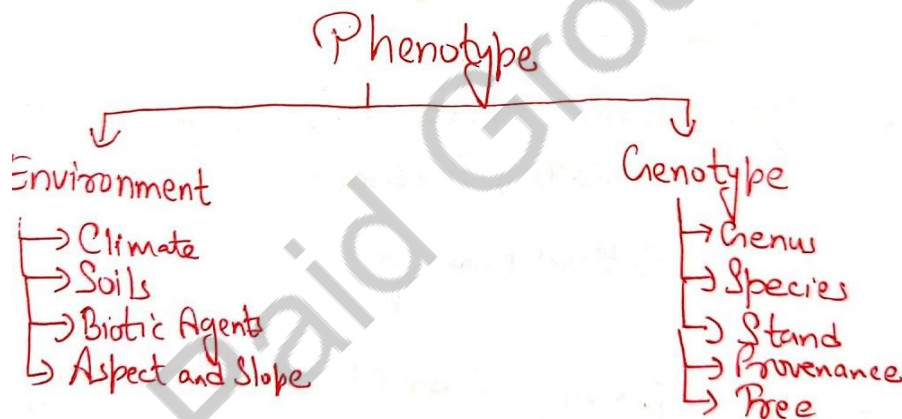 Phenotype
Environment
Climate
Soils
Biotic Agents
Aspect and Slope
Genotype
Genus
Species
Stand
Provenance
Tree
Paid Grou